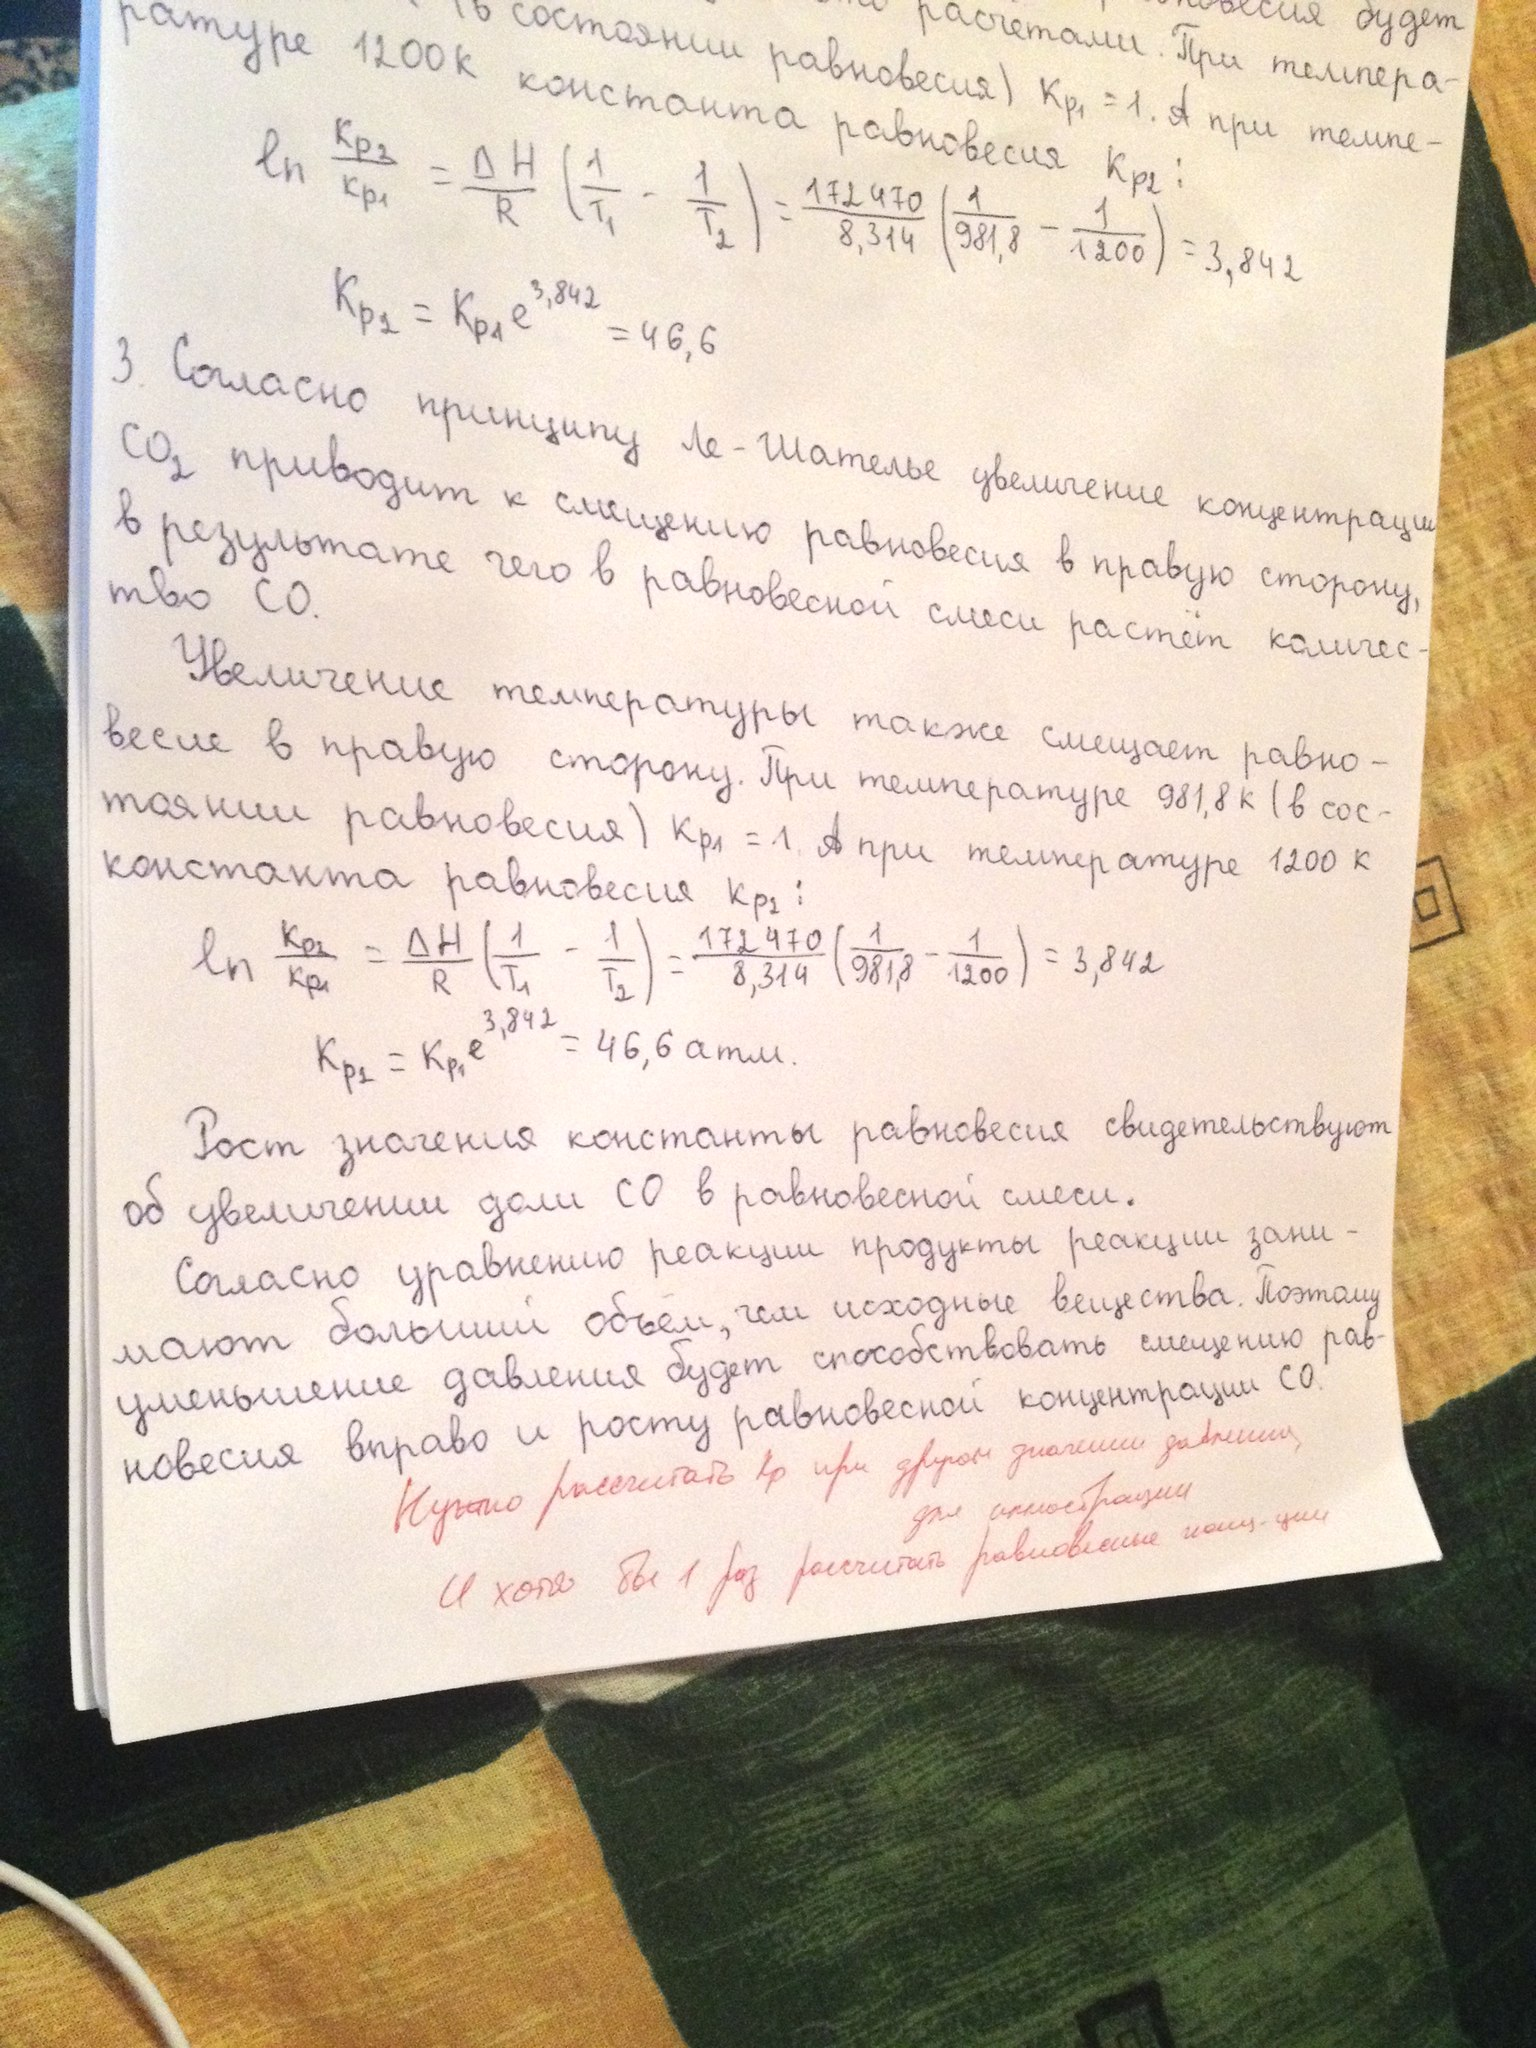 расчетами. При темпера-
(в состоянии равновесия) Kp1 = 1. А при темпе-
ратуре 1200К константа равновесия Kp2:
ln Kp2/Kp1 = ΔH/R (1/T1 - 1/T2) = 172470/8,314 (1/981,8 - 1/1200) = 3,842
Kp2 = Kp1 e^3,842 = 46,6
3. Согласно принципу Ле-Шателье увеличение концентрации
CO2 приводит к смещению равновесия в правую сторону,
в результате чего в равновесной смеси растёт количес-
тво CO.
Увеличение температуры также смещает равно-
весие в правую сторону. При температуре 981,8К (в сос-
тоянии равновесия) Kp1 = 1. А при температуре 1200 К
константа равновесия Kp2:
ln Kp2/Kp1 = ΔH/R (1/T1 - 1/T2) = 172470/8,314 (1/981,8 - 1/1200) = 3,842
Kp2 = Kp1 e^3,842 = 46,6 атм.
Рост значения константы равновесия свидетельствуют
об увеличении доли CO в равновесной смеси.
Согласно уравнению реакции продукты реакции зани-
мают больший объём, чем исходные вещества. Поэтому
уменьшение давления будет способствовать смещению рав-
новесия вправо и росту равновесной концентрации CO.
Нужно рассчитать Kp при другом значении давления,
для иллюстрации
И хотя бы 1 раз рассчитать равновесные конц-ции